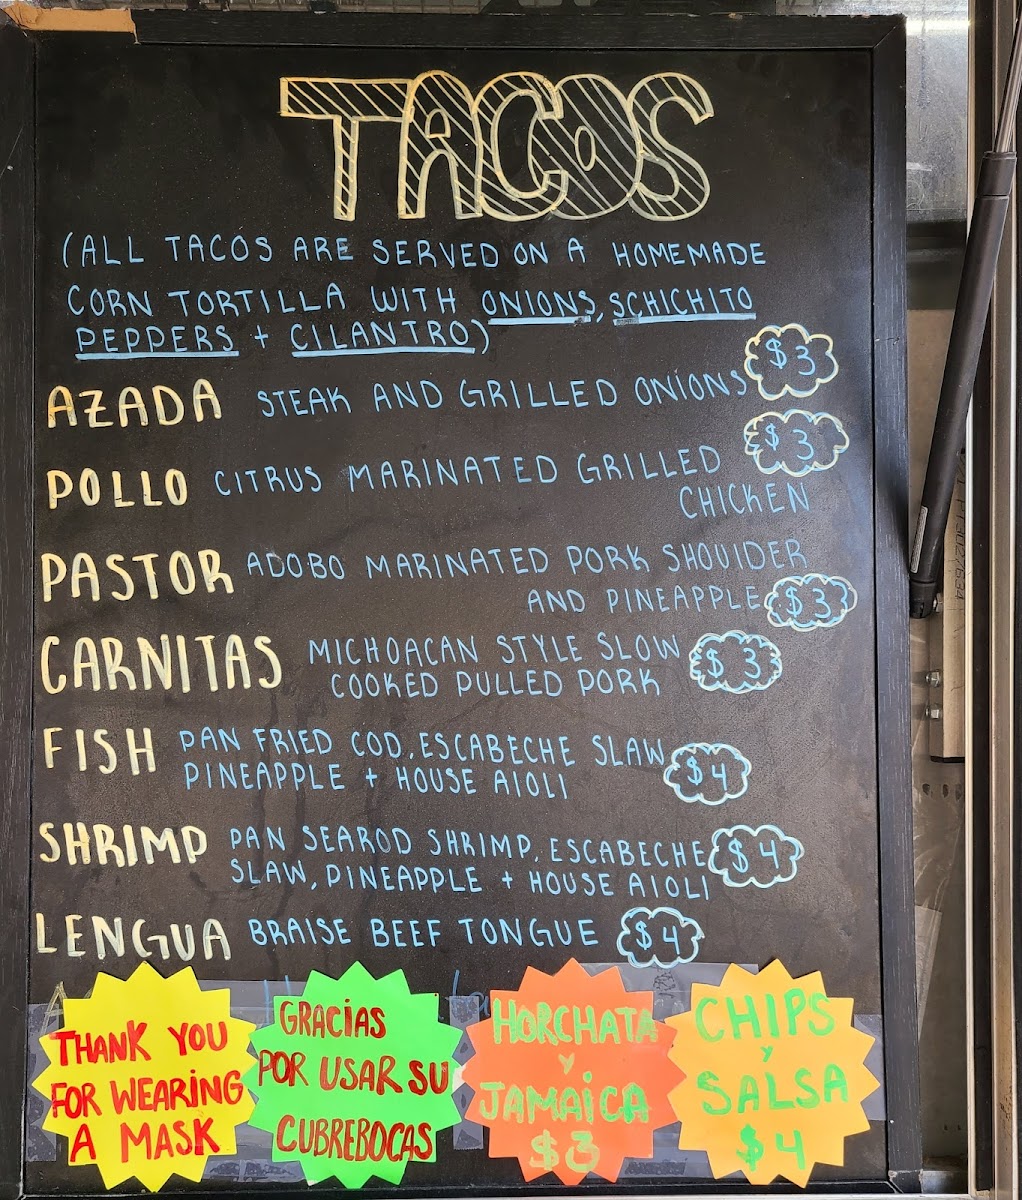 TACOS
(ALL TACOS ARE SERVED ON A HOMEMADE
CORN TORTILLA WITH ONIONS, SCHICHITO
PEPPERS + CILANTRO)
AZADA STEAK AND GRILLED ONIONS $3
POLLO CITRUS MARINATED GRILLED $3
CHICKEN
PASTOR ADOBO MARINATED PORK SHOULDER
AND PINEAPPLE $3
CARNITAS MICHOACAN STYLE SLOW
COOKED PULLED PORK $3
FISH PAN FRIED COD, ESCABECHE SLAW
PINEAPPLE + HOUSE AIOLI $4
SHRIMP PAN SEAROD SHRIMP, ESCABECHE $4
SLAW, PINEAPPLE + HOUSE AIOLI
LENGUA BRAISE BEEF TONGUE $4
THANK YOU
FOR WEARING
A MASK
GRACIAS
POR USAR SU
CUBREBOCAS
HORCHATA
y
JAMAICA
$3
CHIPS
y
SALSA
$4